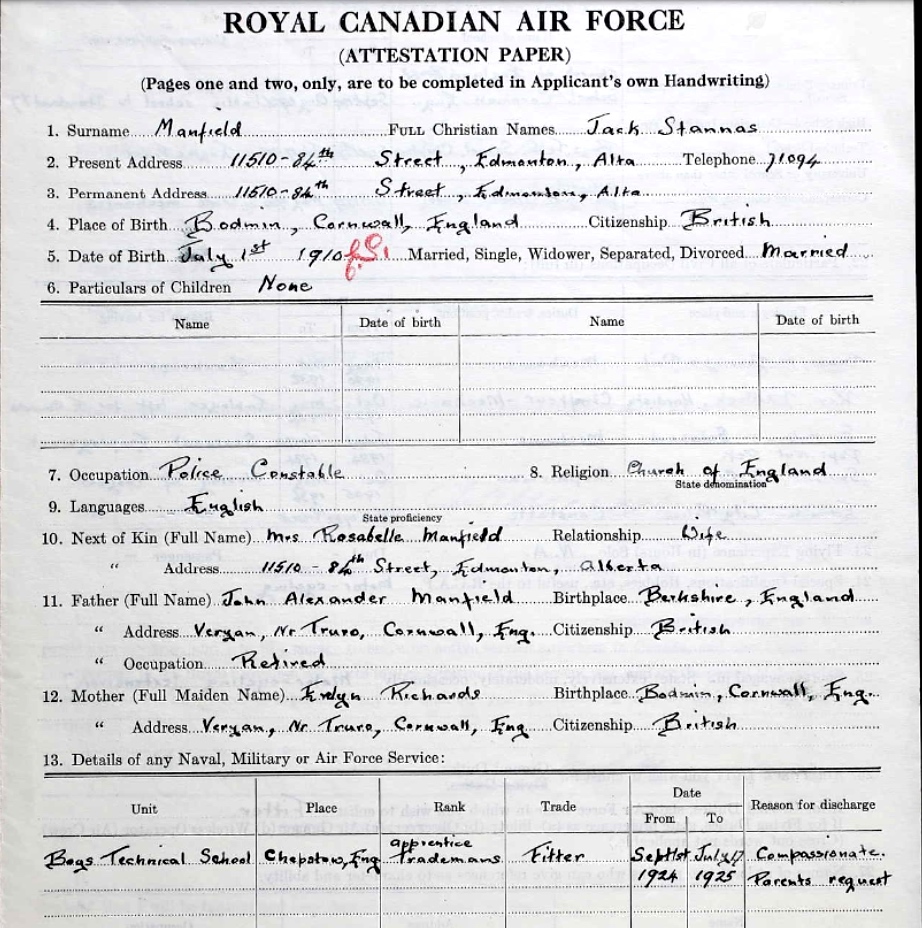 ROYAL CANADIAN AIR FORCE
(ATTESTATION PAPER)
(Pages one and two, only, are to be completed in Applicant's own Handwriting)
1. Surname Manfield FULL CHRISTIAN NAMES Jack Stannas
2. Present Address 11510-84th Street, Edmonton, Alta Telephone 71094
3. Permanent Address 11510-84th Street, Edmonton, Alta
4. Place of Birth Bodmin, Cornwall, England Citizenship British
5. Date of Birth July 1st 1910 Married, Single, Widower, Separated, Divorced Married
6. Particulars of Children None
Name Date of birth Name Date of birth
7. Occupation Police Constable 8. Religion Church of England
State denomination
9. Languages English
State proficiency
10. Next of Kin (Full Name) Mrs Rosabelle Manfield Relationship Wife
" Address 11510-84th Street, Edmonton, Alberta
11. Father (Full Name) John Alexander Manfield Birthplace Berkshire, England
" Address Veryan, Nr Truro, Cornwall, Eng. Citizenship British
" Occupation Retired
12. Mother (Full Maiden Name) Evelyn Richards Birthplace Bodmin, Cornwall, Eng.
" Address Veryan, Nr Truro, Cornwall, Eng Citizenship British
13. Details of any Naval, Military or Air Force Service:
Unit Place Rank Trade Date Reason for discharge
From To
Boys Technical School Chepstow, Eng apprentice Trademans Fitter Sept 1st 1924 July 17 1925 Compassionate.
Parents request